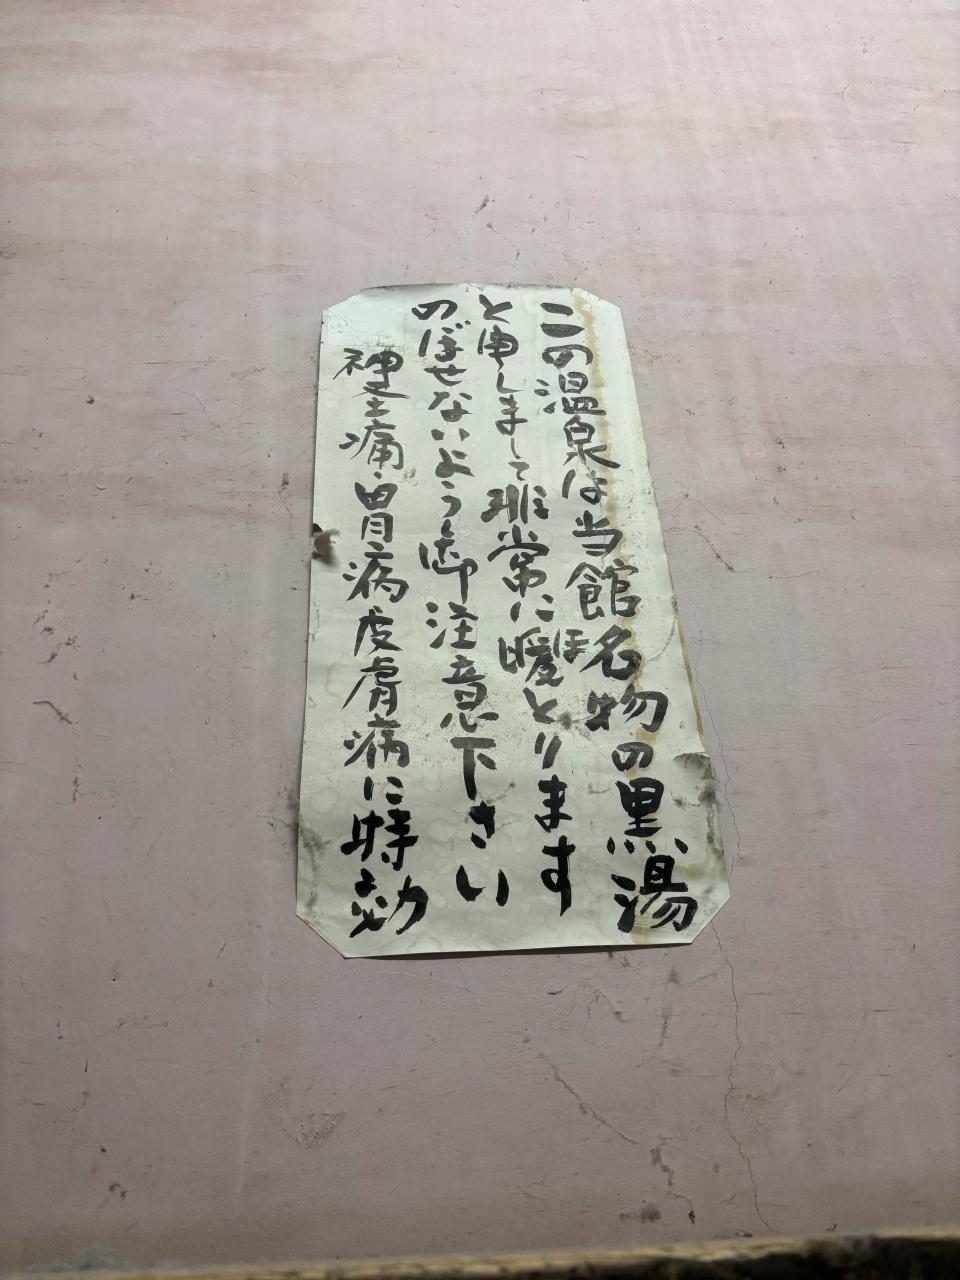 この温泉は当館名物の黒湯
と申しまして非常に暖ほとります
のぼせないよう御注意下さい
神圣痛胃病皮膚病に特効